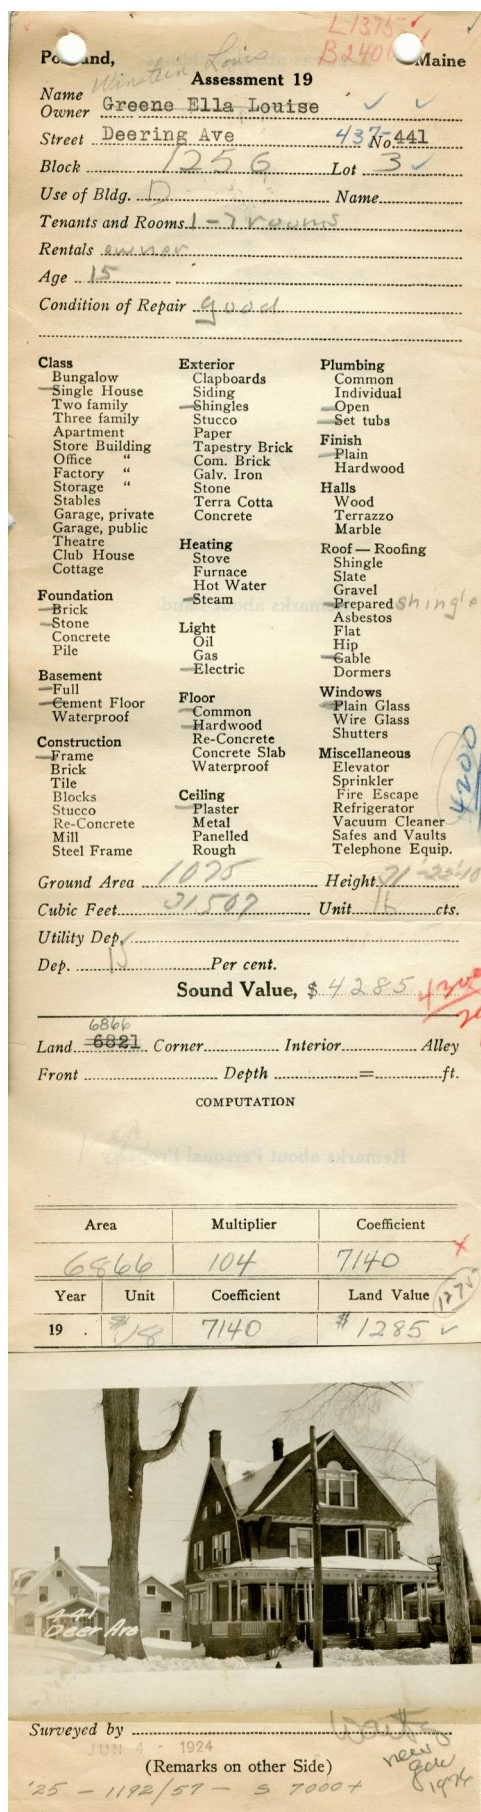 L1375
B240
Portland, Maine
Winstein Louis
Assessment 19
Name
Owner Greene Ella Louise
Street Deering Ave 437- No. 441
Block 125 G Lot 3
Use of Bldg. D Name
Tenants and Rooms 1-7 rooms
Rentals owner
Age 15
Condition of Repair good
Class
Bungalow
Single House
Two family
Three family
Apartment
Store Building
Office "
Factory "
Storage "
Stables
Garage, private
Garage, public
Theatre
Club House
Cottage
Foundation
Brick
Stone
Concrete
Pile
Basement
Full
Cement Floor
Waterproof
Construction
Frame
Brick
Tile
Blocks
Stucco
Re-Concrete
Mill
Steel Frame
Exterior
Clapboards
Siding
Shingles
Stucco
Paper
Tapestry Brick
Com. Brick
Galv. Iron
Stone
Terra Cotta
Concrete
Heating
Stove
Furnace
Hot Water
Steam
Light
Oil
Gas
Electric
Floor
Common
Hardwood
Re-Concrete
Concrete Slab
Waterproof
Ceiling
Plaster
Metal
Panelled
Rough
Plumbing
Common
Individual
Open
Set tubs
Finish
Plain
Hardwood
Halls
Wood
Terrazzo
Marble
Roof — Roofing
Shingle
Slate
Gravel
Prepared shingle
Asbestos
Flat
Hip
Gable
Dormers
Windows
Plain Glass
Wire Glass
Shutters
Miscellaneous
Elevator
Sprinkler
Fire Escape
Refrigerator
Vacuum Cleaner
Safes and Vaults
Telephone Equip.
4200
Ground Area 1075 Height
Cubic Feet 31507 Unit 16 cts.
Utility Dep.
Dep. 15 Per cent.
Sound Value, $ 4285 4300
6866
Land 6821 Corner Interior Alley
Front Depth = ft.
COMPUTATION
Area Multiplier Coefficient
6866 104 7140
Year Unit Coefficient Land Value 1275
19 . $18 7140 $1285
441
Deer Ave
Surveyed by
JUN 4 - 1924
(Remarks on other Side)
new
gar
1926
'25 - 1192/57 - S 7000+